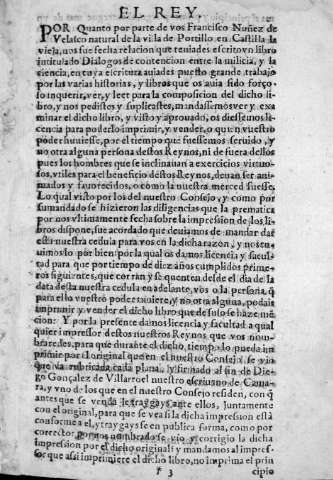 EL REY.
POR Quanto por parte de vos Francisco Nuñez de
Velasco natural de la villa de Portillo en Castilla la
vieja, nos fue fecha relacion que teniades escrito vn libro
intitulado Dialogos de contencion entre la milicia, y la
ciencia, en tuya escritura auiades puesto grande trabajo
por las varias historias, y libros que os auia sido forço-
so inquerir, ver, y leer para la composicion del dicho li-
bro, y nos pedistes y suplicastes, mandassemos ver y exa
minar el dicho libro, y visto y aprouado, os diessemos li-
cencia para poderlo imprimir, y vender, o que en vuestro
poder huuiesse, por el tiempo que fuessemos seruido, y
no otra alguna persona destos Reynos, ni de fuera dellos
pues los hombres que se inclinauan a exercicios virtuo-
sos, vtiles para el beneficio destos Reynos, deuian ser ani
mados y fauorecidos, o como la nuestra merced fuesse.
Lo qual visto por los del nuestro Consejo, y como por
su mandado se hizieron las diligencias que la prematica
por nos vltimamente fecha sobre la impression de los li-
bros dispone, fue acordado que deuiamos de mandar dar
esta nuestra cedula para vos en la dicha razon, y nos tu-
uimoslo por bien: por la qual os damos licencia y facul-
tad para que por tiempo de diez años cumplidos prime-
ros siguientes, que corran y se quenten desde el dia de la
data desta nuestra cedula en adelante, vos o la persona, q̃
para ello vuestro poder tuuiere, y no otra alguna, podais
imprimir y vender el dicho libro que de suso se haze me-
cion: Y por la presente damos licencia y facultad a qual
quier impressor destos nuestros Reynos que vos nom-
braredes, para que durante el dicho tiempo lo pueda im-
primir por el original que en el nuestro Consejo se vio
que va rubricada cada plana, y firmado al fin de Die-
go Gonçalez de Villarroel nuestro escriuano de Cama-
ra, y vno de los que en el nuestro Consejo residen, con q̃
antes que se venda le traygays ante ellos, juntamente
con el original, para que se vea si la dicha impression està
conforme a el, y traygays fe en publica forma, como por
corrector por nos nombrado se vio y corrigio la dicha
impression por el dicho original: y mandamos al impres-
sor que assi imprimiere el dicho libro, no imprima el prin
¶ 3 cipio